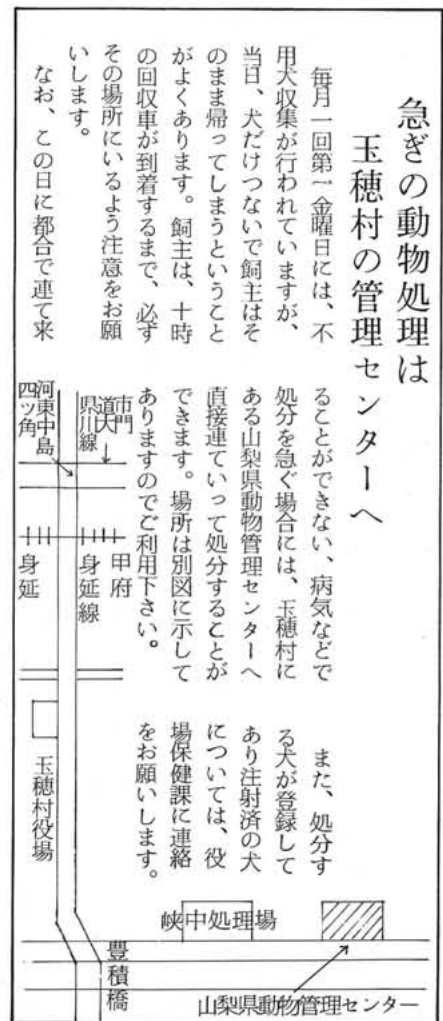 急ぎの動物処理は
玉穂村の管理センターへ
毎月一回第一金曜日には、不
用犬収集が行われていますが、
当日、犬だけつないで飼主はそ
のまま帰ってしまうということ
がよくあります。飼主は、十時
の回収車が到着するまで、必ず
その場所にいるよう注意をお願
いします。
なお、この日に都合で連て来
ることができない、病気などで
処分を急ぐ場合には、玉穂村に
ある山梨県動物管理センターへ
直接連ていって処分することが
できます。場所は別図に示して
ありますのでご利用下さい。
また、処分す
る犬が登録して
あり注射済の犬
については、役
場保健課に連絡
をお願いします。
市門
道大
県川線
河東中島
四ツ角
甲府
身延線
身延
玉穂村役場
豊積橋
峡中処理場
山梨県動物管理センター